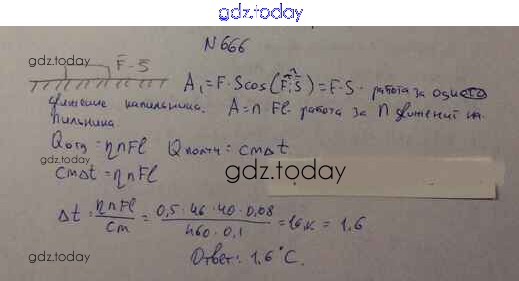 gdz.today
N666
gdz.today
F S
A₁ = F·S cos(F;S) = F·S · работа за одно
движение напильника. A = n·Fl · работа за n движений на-
пильника.
Qотд = ηnFl Qполуч = cmΔt
gdz.today
cmΔt = ηnFl
gdz.today
Δt = ηnFl / cm = 0,5·46·40·0,08 / 460·0,1 = 1,6
Ответ: 1,6°C.
gdz.today